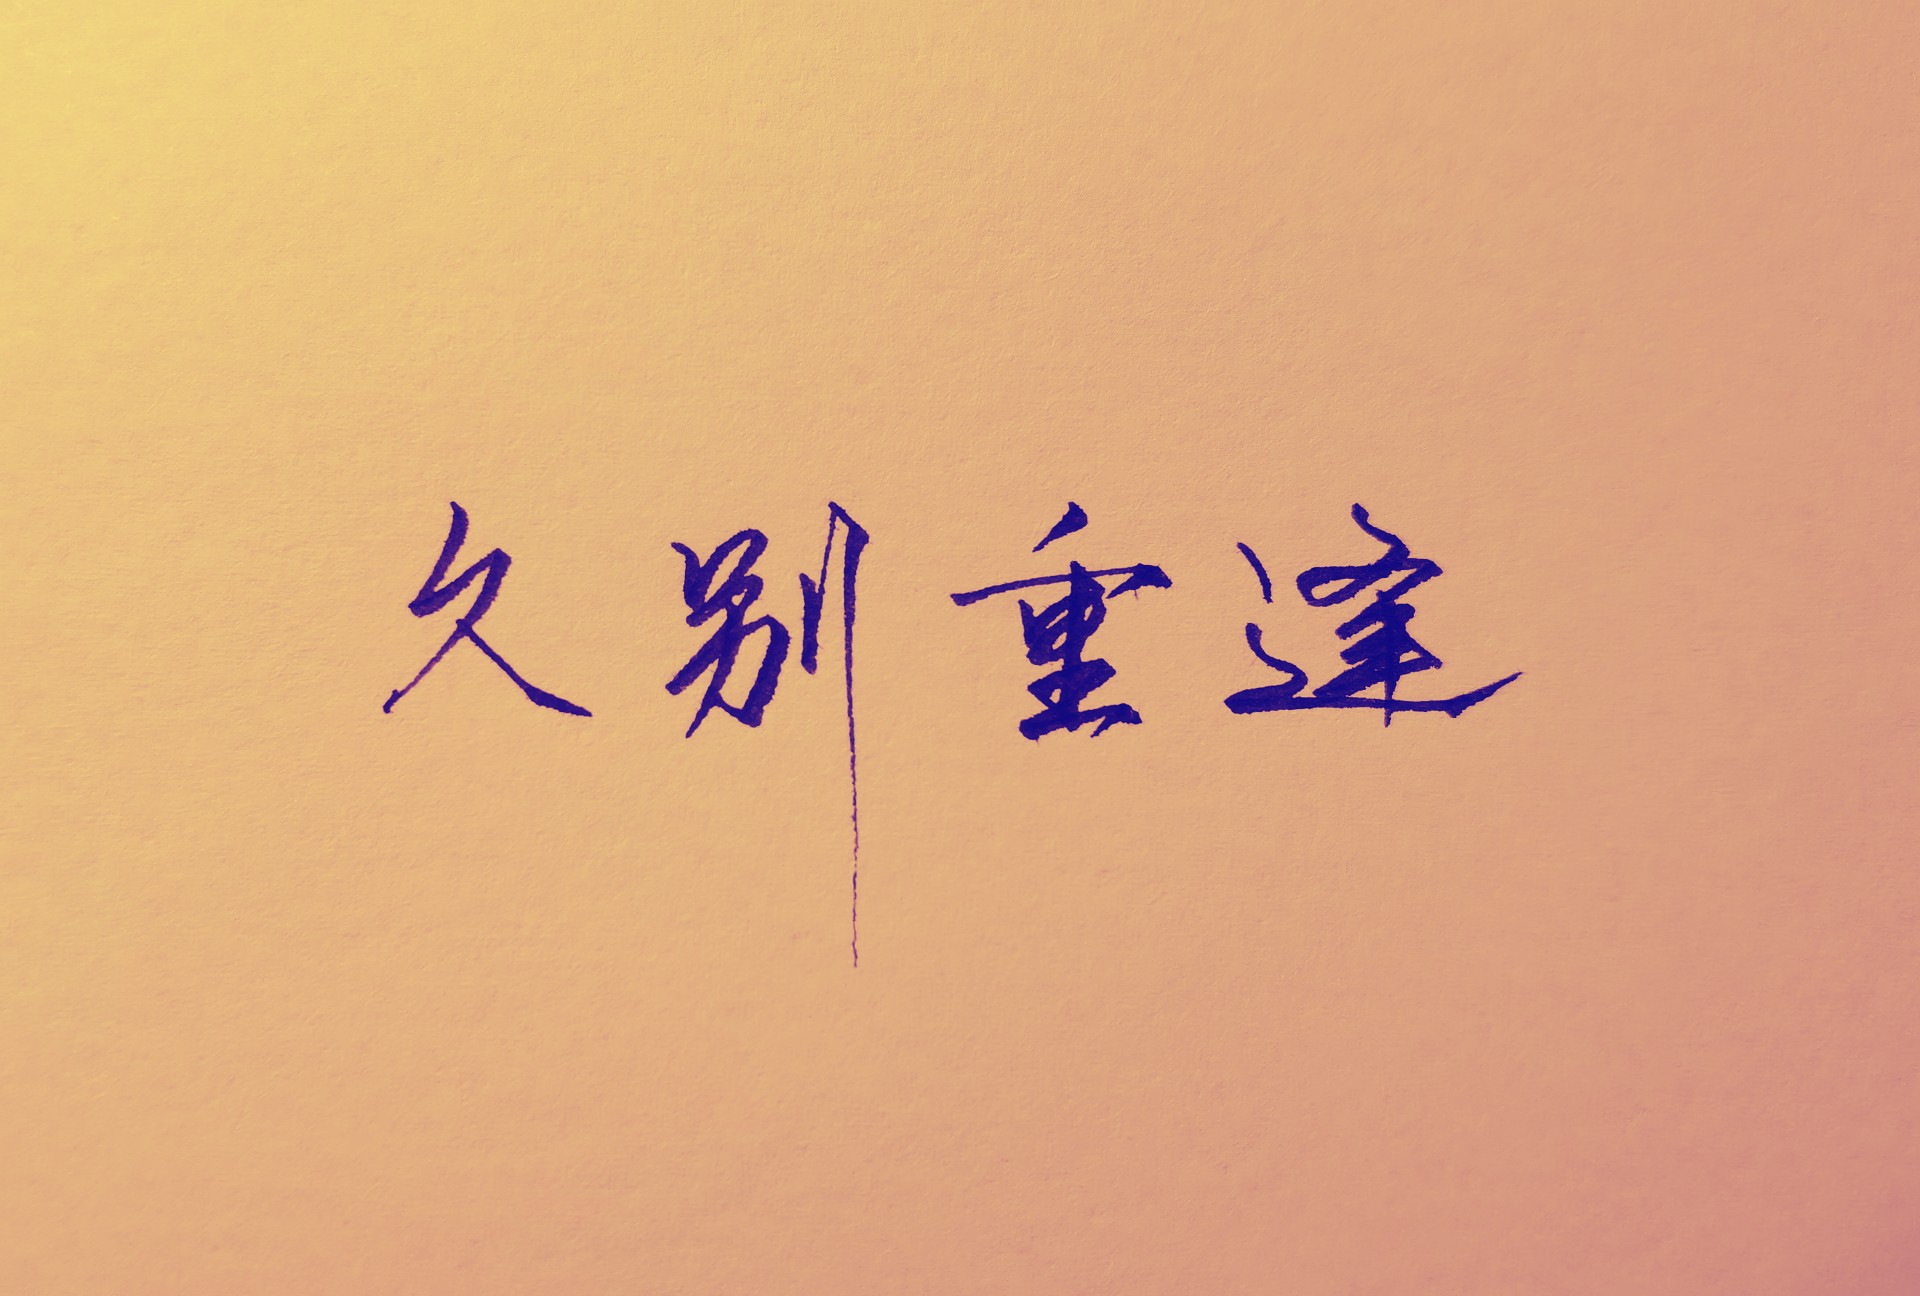 久别重逢